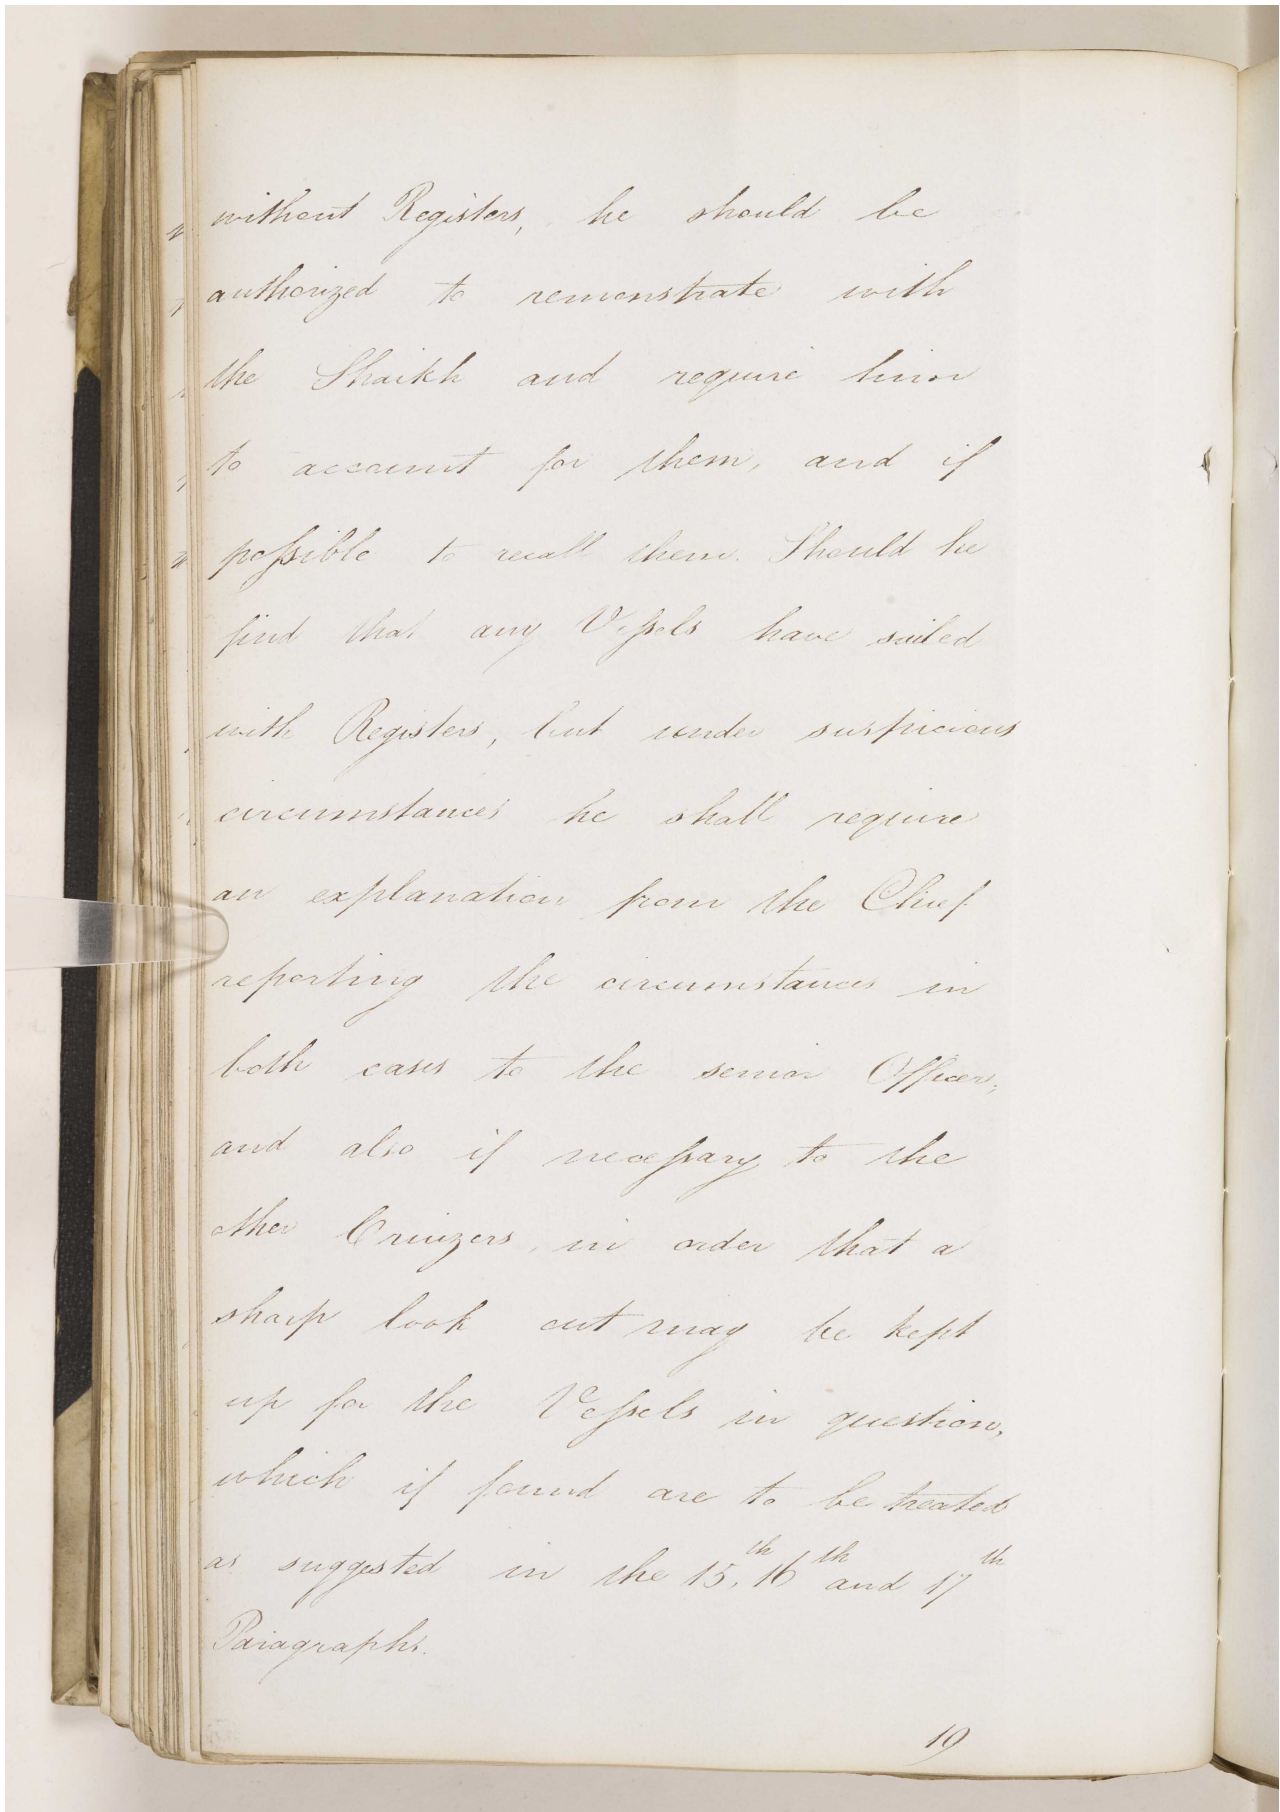 without Registers, he should be
authorized to remonstrate with
the Shaikh and require him
to account for them, and if
possible to recall them. Should he
find that any Vessels have sailed
with Registers, but under suspicious
circumstances he shall require
an explanation from the Chief
reporting the circumstances in
both cases to the senior Officer,
and also if necessary to the
other Cruizers, in order that a
sharp look out may be kept
up for the Vessels in question,
which if found are to be treated
as suggested in the 15,th 16th and 17th
Paragraphs.
19